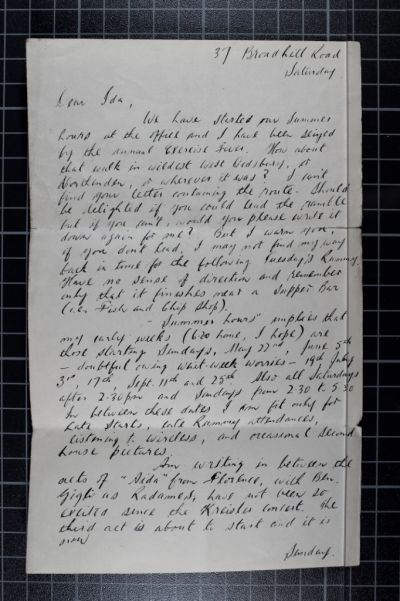 37 Broadhill Road
Saturday.
Dear Ida,
We have started our Summer
hours at the office and I have been seized
by the annual Exercise Fever. How about
that walk in wildest West Didsbury, or
Northenden, or wherever it was? I can't
find your letter containing the route. Should
be delighted if you could lead the ramble
but if you can't, would you please write it
down again for me? But I warn you,
if you don't lead, I may not find my way
back in time for the following Tuesday's Rammy.
Have no sense of direction and remember
only that it finishes near a Supper Bar
(i.e. Fish and Chip Shop).
"Summer hours" implies that
my early weeks (6-20 home, I hope) are
those starting Sundays, May 22nd, June 5th
- doubtful owing Whit-week worries - 19th July
3rd, 17th, Sept. 11th and 25th. Also all Saturdays
after 2-30pm and Sundays from 2.30 to 5-30
In between these dates I am fit only for
late starts, late Rammy attendances,
listening to wireless, and occasional second
house pictures.
Am writing in between the
acts of "Aida" from Florence, with Ben.
Gigli as Radames, have not been so
excited since the Kreisler concert. The
third act is about to start and it is
now
Sunday.